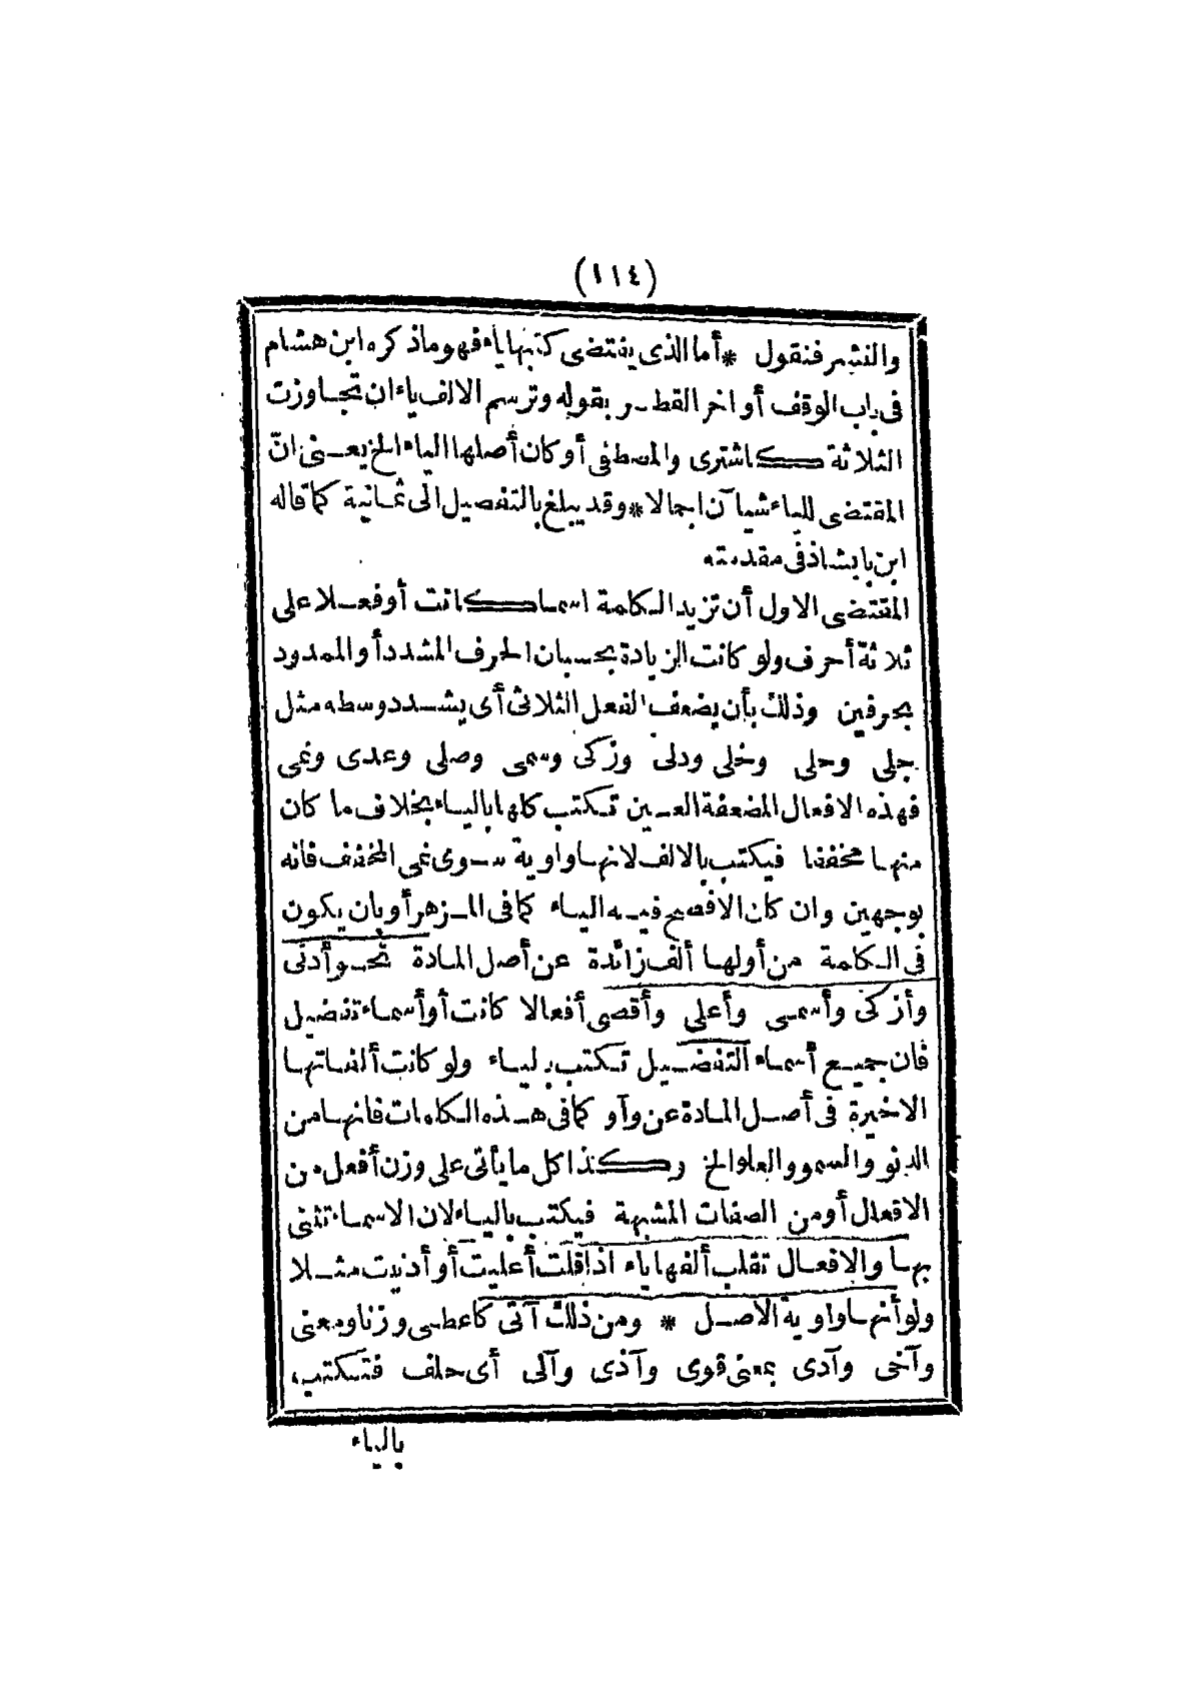 (١١٤)
والنشر فنقول * أما الذى يقتضى كتبها ياء فهو ما ذكره ابن هشام
فى باب الوقف أواخر القطر بقوله وترسم الالف ياء ان تجاوزت
الثلاثة كاشترى والمصطفى أو كان أصلها الياء الخ يعنى انّ
المقتضى للياء شيآن اجمالا * وقد يبلغ بالتفصيل الى ثمانية كما قاله
ابن بابشاذ فى مقدمته
المقتضى الاول أن تزيد الكلمة اسما كانت أو فعلا على
ثلاثة أحرف ولو كانت الزيادة بحسبان الحرف المشدد أو الممدود
بحرفين وذلك بأن يضعف الفعل الثلاثى أى يشدد وسطه مثل
جلى وحلى وخلى ودلى وزكى وسمى وصلى وعدى ونمى
فهذه الافعال المضعفة العين تكتب كلها بالياء بخلاف ما كان
منها مخففا فيكتب بالالف لانها واوية سوى نمى المخفف فانه
بوجهين وان كان الافصح فيه الياء كما فى المزهر أو بان يكون
فى الكلمة من أولها ألف زائدة عن أصل المادة نحو أدنى
وأزكى وأسمى وأعلى وأقصى أفعالا كانت أو أسماء تفضيل
فان جميع أسماء التفضيل تكتب بالياء ولو كانت ألفاتها
الاخيرة فى أصل المادة عن واو كما فى هذه الكلمات فانها من
الدنو والسمو والعلو الخ وكذا كل ما يأتى على وزن أفعل من
الافعال أو من الصفات المشبهة فيكتب بالياء لان الاسماء تثنى
بها والافعال تقلب ألفها ياء اذا قلت أعليت أو أدنيت مثلا
ولو أنها واوية الاصل * ومن ذلك آتى كاعطى وزنا ومعنى
وآخى وآدى بمعنى قوى وآذى وآلى أى حلف فتكتب
بالياء